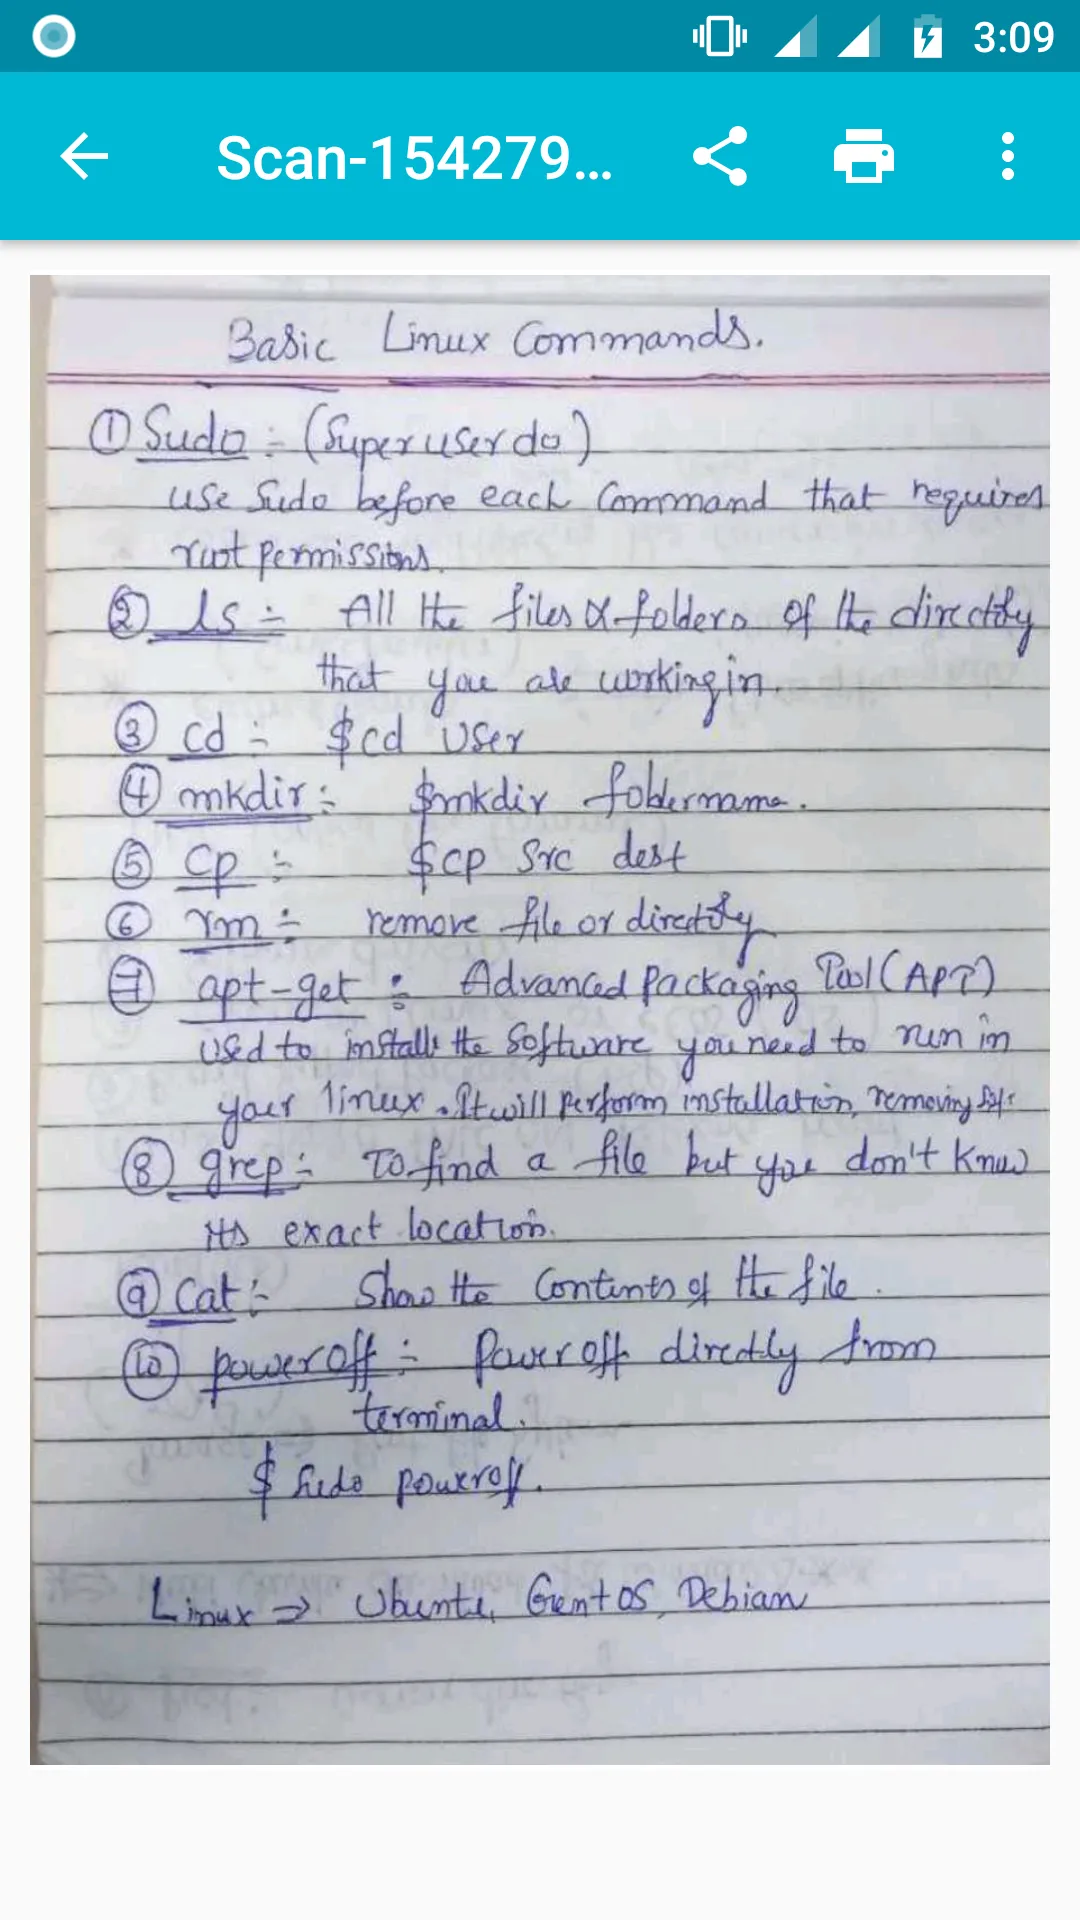 3:09
Scan-154279...
Basic Linux Commands.
① Sudo :- (Superuser do)
use sudo before each Command that requires
root permissions.
② ls :- All the files & folders of the directory
that you are working in.
③ cd :- $cd User
④ mkdir :- $mkdir foldername.
⑤ Cp :- $cp src dest
⑥ rm :- remove file or directory
⑦ apt-get :- Advanced Packaging Tool (APT)
used to install the Software you need to run in
your linux. It will perform installation, removing
⑧ grep :- To find a file but you don't know
its exact location.
⑨ Cat :- Show the Contents of the file.
⑩ poweroff :- Power off directly from
terminal.
$ sudo poweroff.
Linux ⇒ Ubuntu, CentOS, Debian